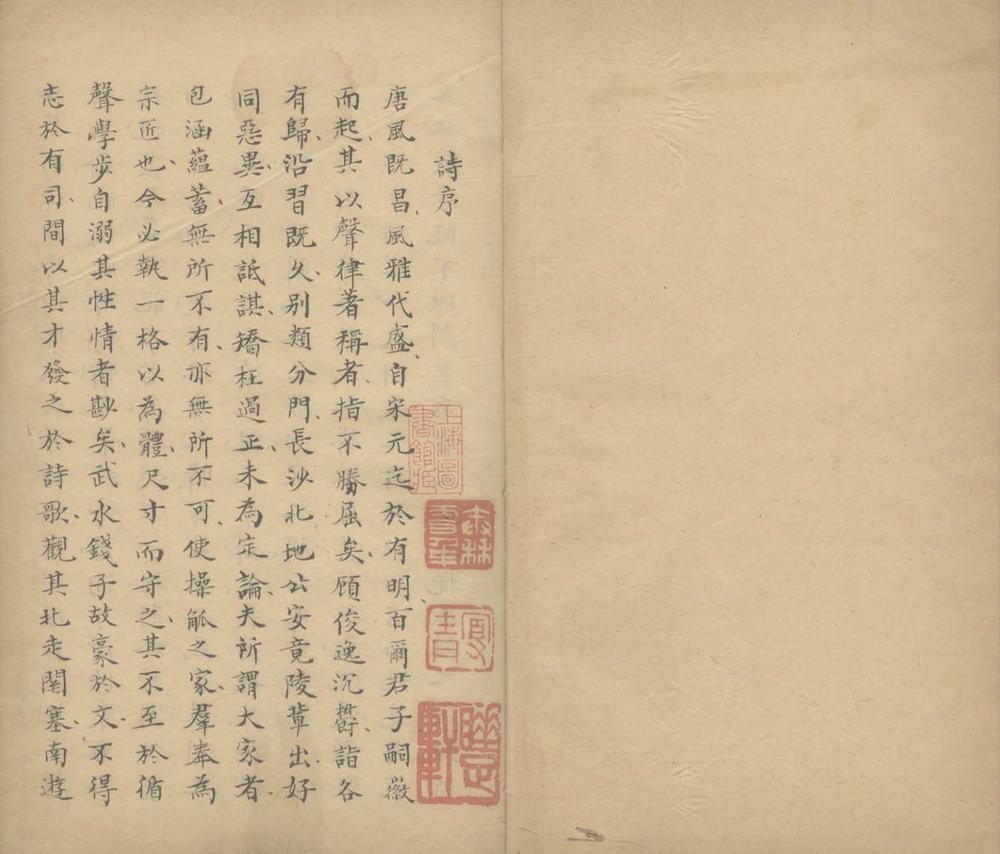 詩序
唐風既昌、風雅代盛、自宋元迄於有明、百爾君子嗣徽
而起、其以聲律著稱者、指不勝屈矣、顧俊逸沉欝、詣各
有歸、沿習既久、別類分門、長沙北地公安竟陵軰出、好
同惡異、互相詆諆、矯枉過正、未為定論、夫所謂大家者、
包涵蘊蓄、無所不有、亦無所不可、使操觚之家、羣奉為
宗匠也、今必執一格以為體、尺寸而守之、其不至於循
聲學步自溺其性情者尠矣、武水錢子故豪於文、不得
志於有司、間以其才發之於詩歌、觀其北走關塞、南遊
上海圖書館藏
鳳青